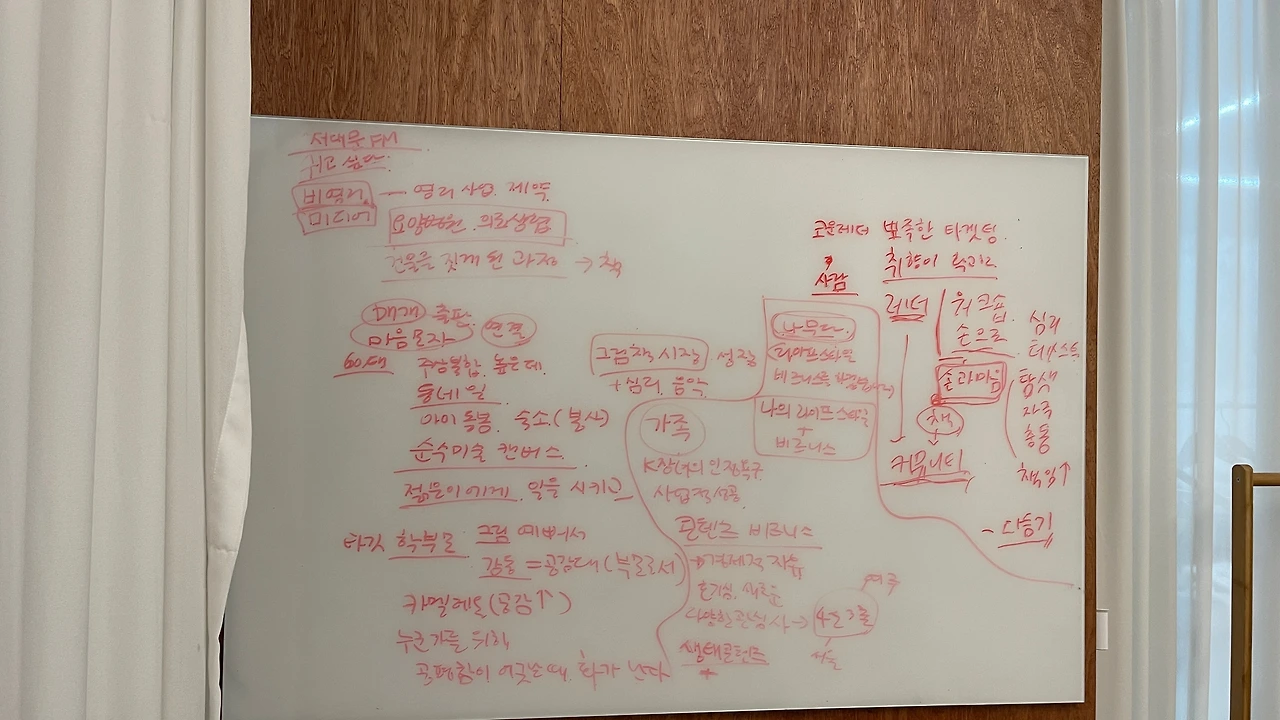 서대문 FM
쉬고 싶다
비영리 — 영리 사업 제약
미디어
요양병원. 의료생협
건물을 짓게 된 과정 → 책
매개 출판
마음모자 연결
60대
주상복합. 높은데.
동네 일
아이 돌봄. 숙소.(봉사)
순수미술 캔버스.
젊은이에게 일을 시키고
타깃 학부모 그림 예뻐서
감동 = 공감대(부모로서)
카멜레온(공감↑)
누군가를 위해
공평함이 어긋날 때. 화가 난다
그림책 시장 성장
+ 심리. 음악.
가족
K장녀의 인정욕구
사업적 성공
콘텐츠 비즈니스
→ 경제적 자유
호기심. 새로운
다양한 관심사 →
생태콘텐츠
+
나무다.
라이프스타일
비즈니스를
나의 라이프스타일
+
비즈니스
뾰족한 타겟팅.
취향이
사람
리더
커뮤니티
워크숍
손으로
손과마음
책
심리
탐색
자극
충동
책임↑
- 다능기